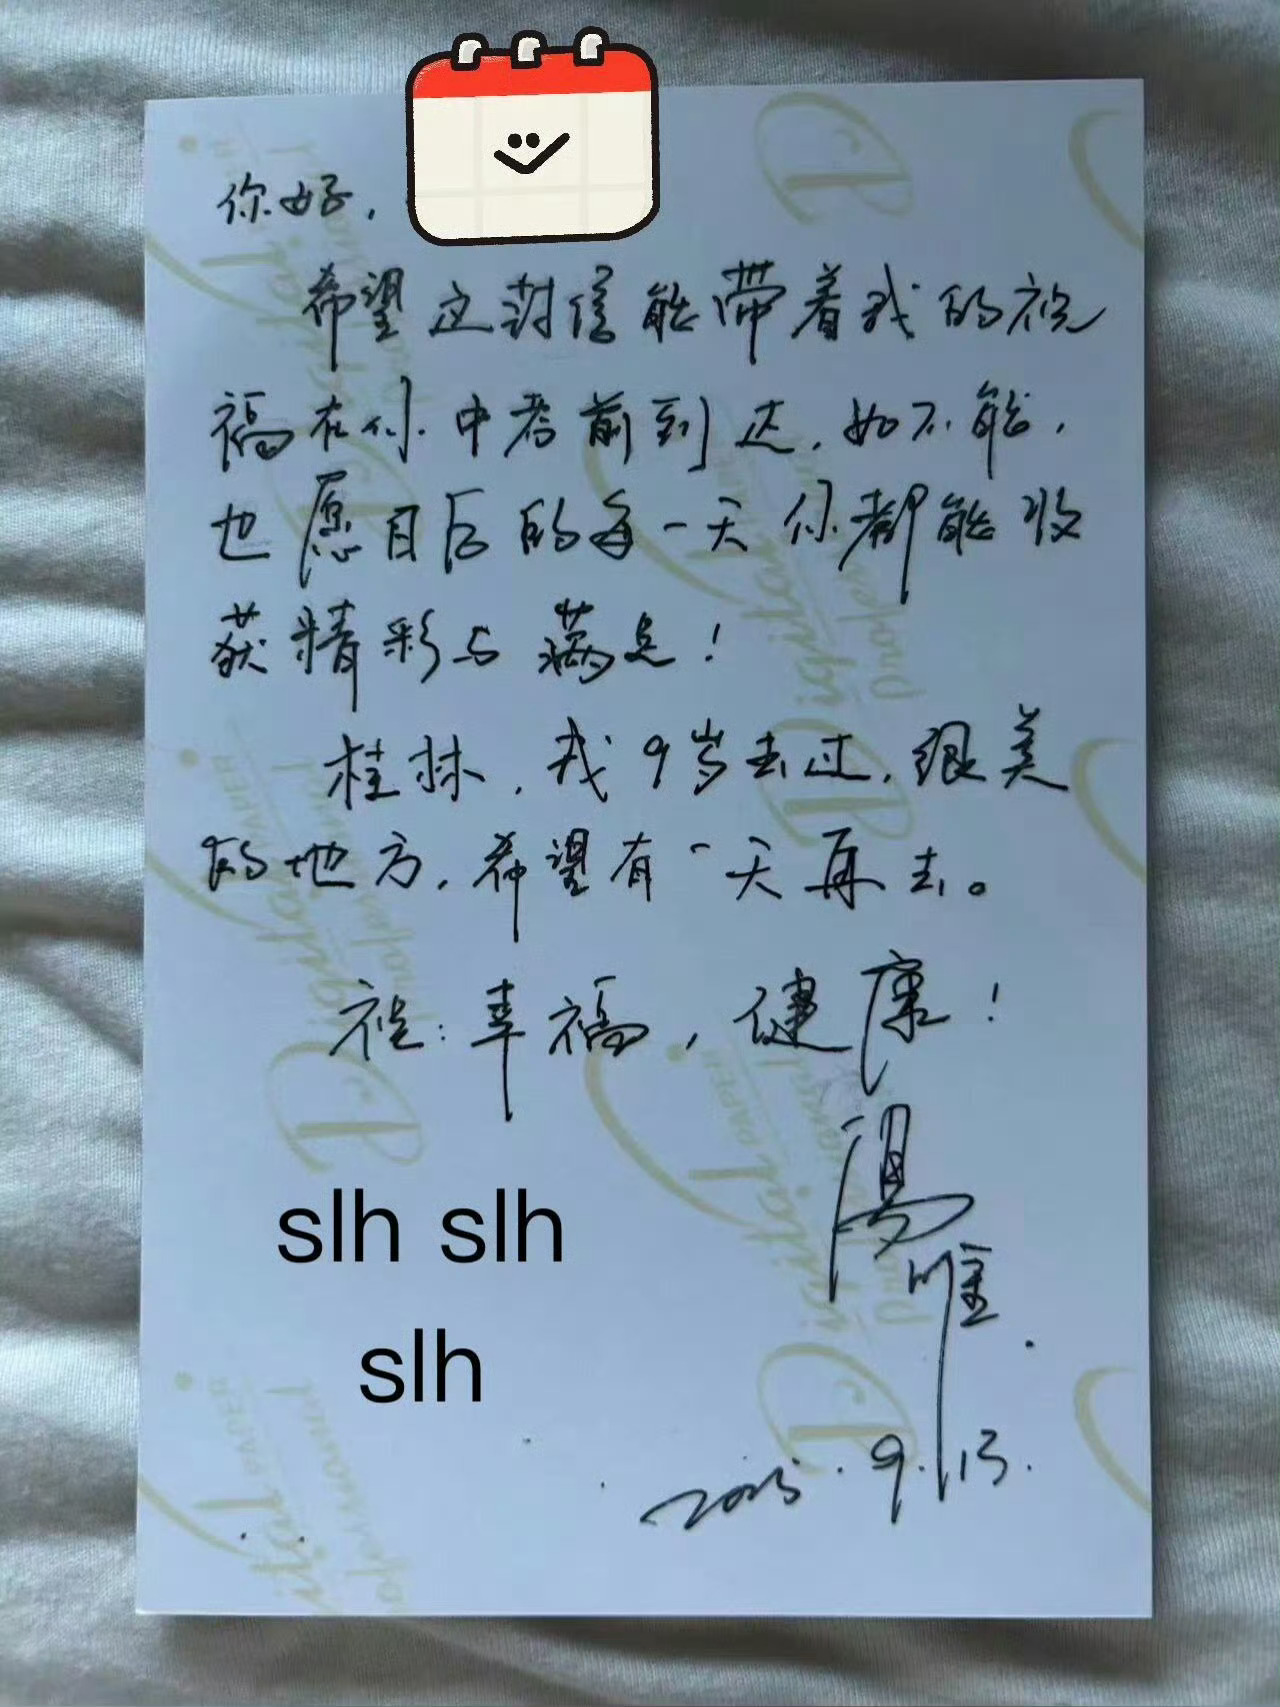 你好,
希望这封信能带着我的祝
福在你中考前到达,如不能,
也愿日后的每一天你都能收
获精彩与满足!
桂林,我9岁去过,很美
的地方,希望有一天再去。
祝:幸福,健康!
汤唯
2025.9.13.
slh slh
slh